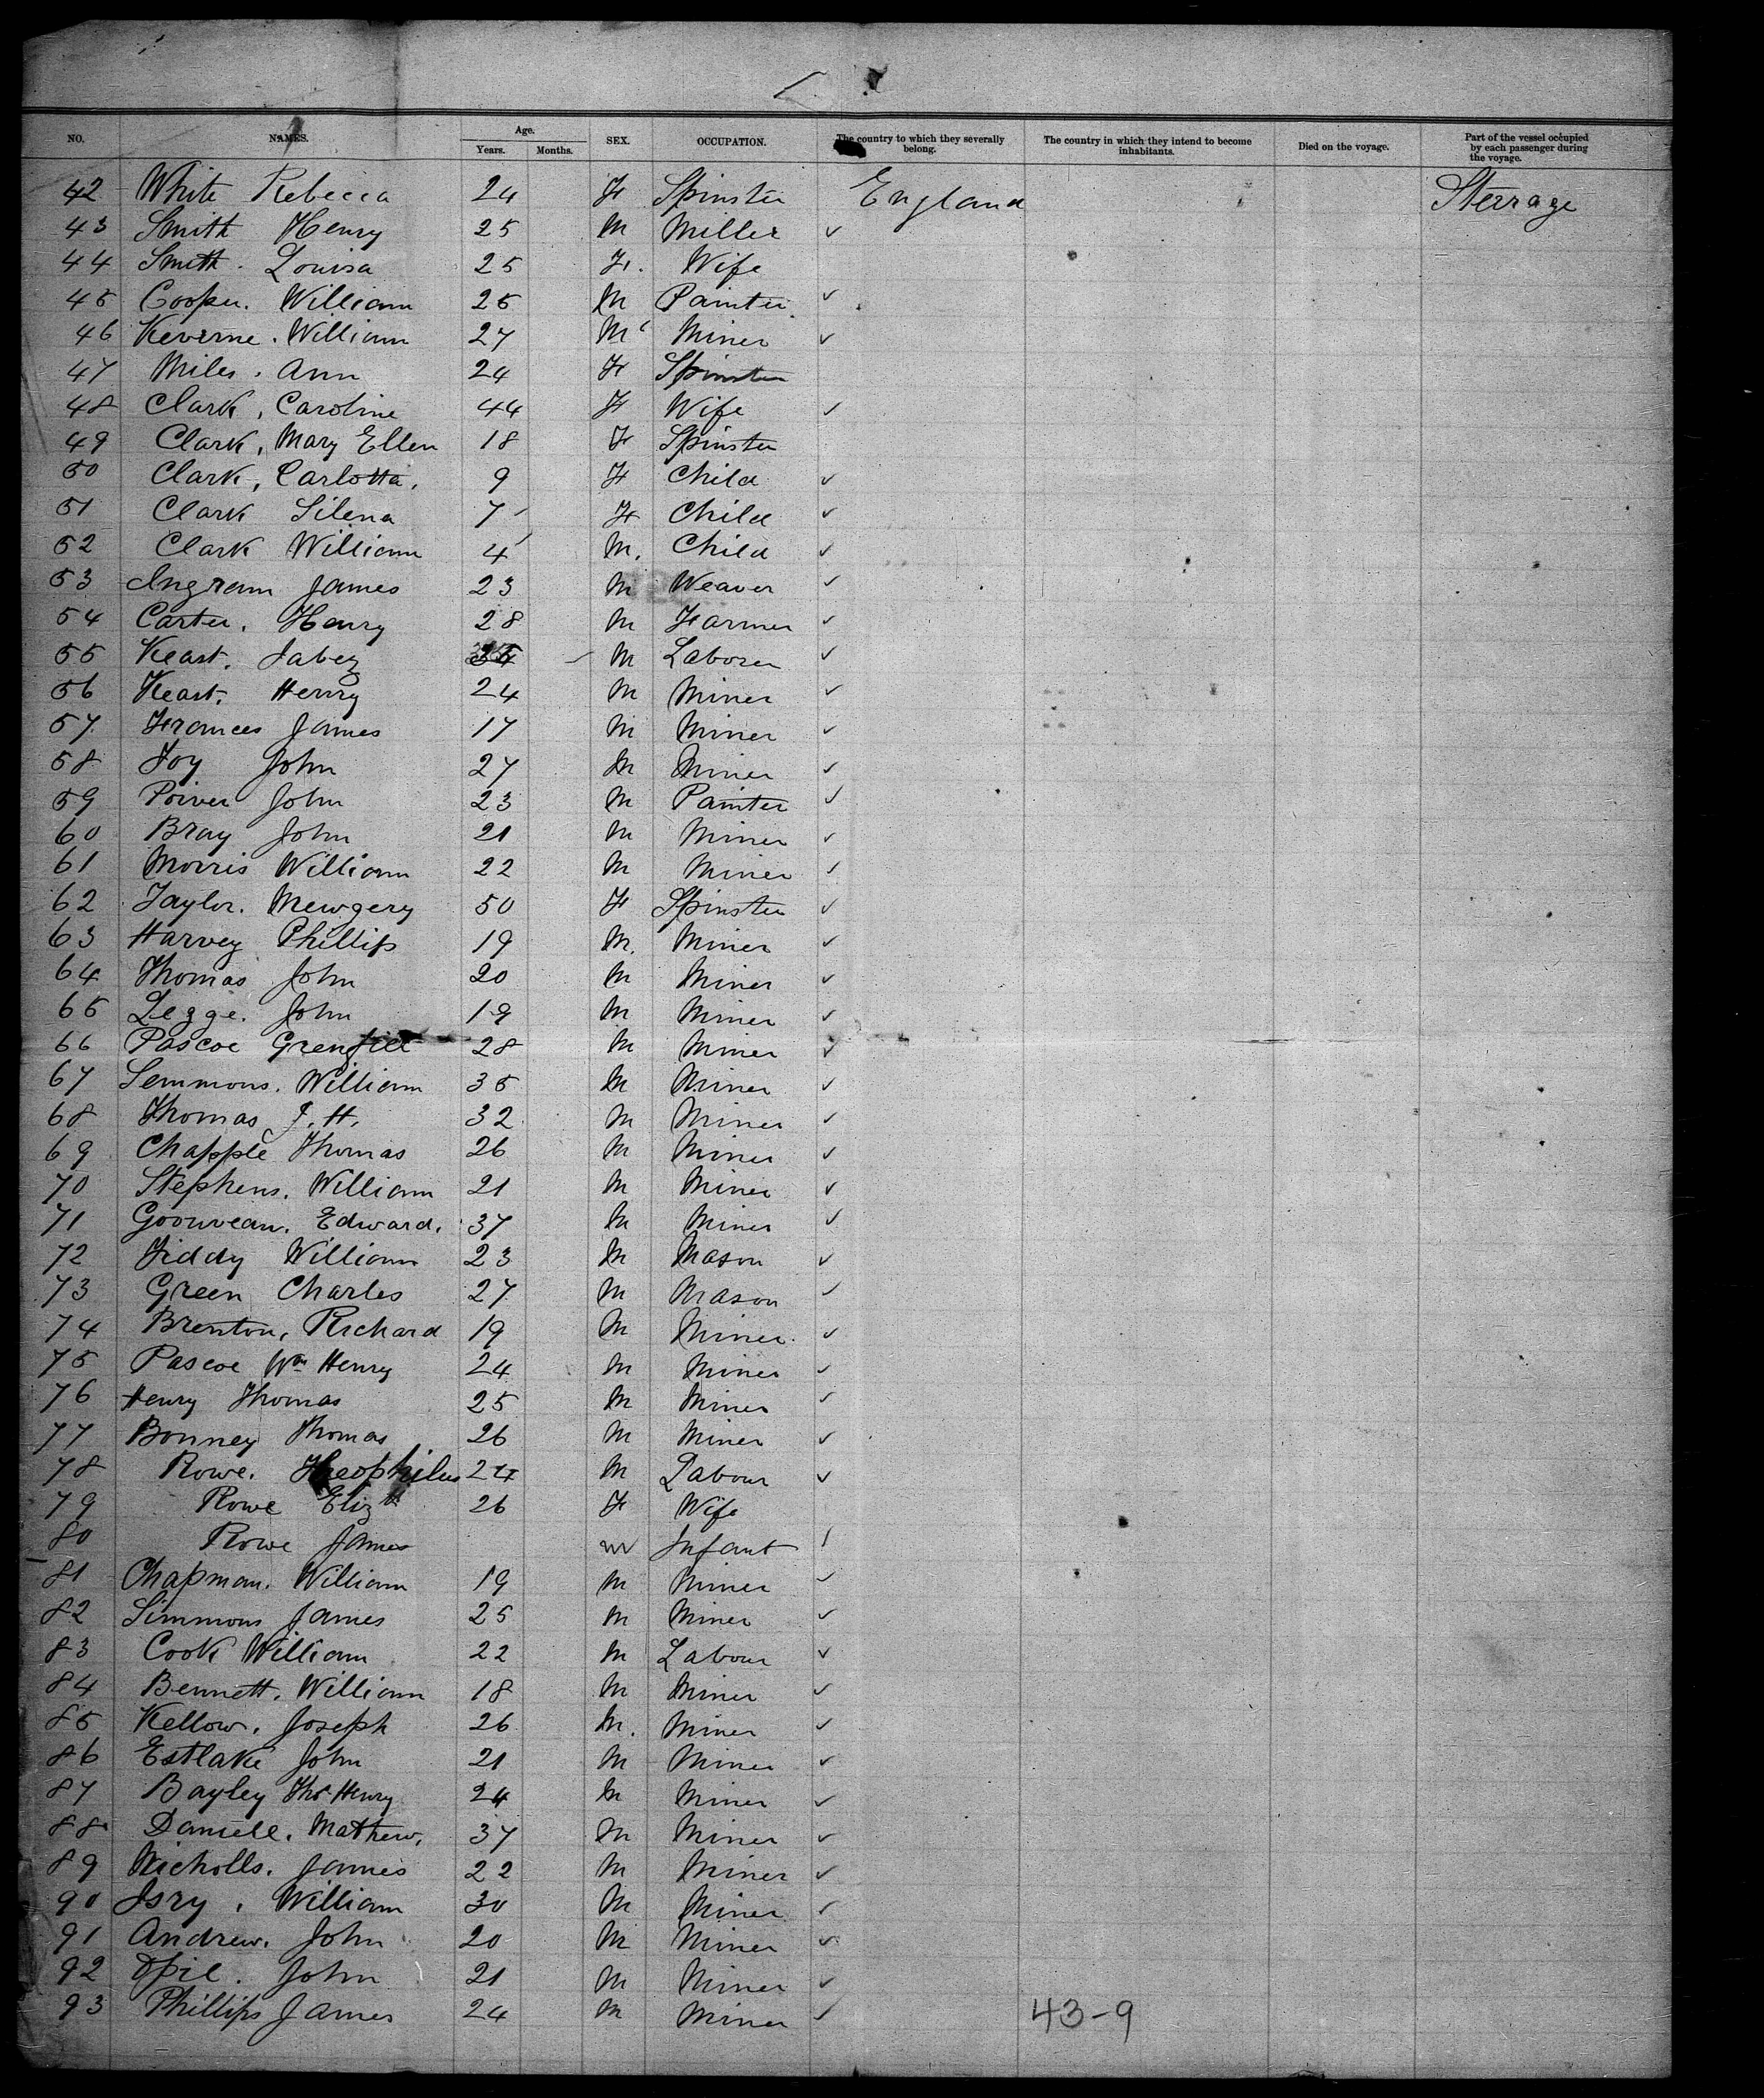 NO. NAMES. Age. Years. Months. SEX. OCCUPATION. The country to which they severally belong. The country in which they intend to become inhabitants. Died on the voyage. Part of the vessel occupied by each passenger during the voyage.
42 White Rebecca 24 F Spinster England Sterrage
43 Smith Henry 25 M Miller ✓
44 Smith. Louisa 25 F. Wife
45 Cooper. William 25 M Painter ✓
46 Keverne. William 27 M Miner ✓
47 Miles. Ann 24 F Spinster
48 Clark, Caroline 44 F Wife ✓
49 Clark, Mary Ellen 18 F Spinster
50 Clark, Carlotta. 9 F Child ✓
51 Clark Silena 7 F Child ✓
52 Clark William 4 M. Child ✓
53 Ingram James 23 M Weaver ✓
54 Carter. Henry 28 M Farmer ✓
55 Keast. Jabez M Laborer ✓
56 Keast. Henry 24 M Miner ✓
57 Frances James 17 M Miner ✓
58 John 27 M Miner ✓
59 John 23 M Painter ✓
60 Bray John 21 M Miner ✓
61 Morris William 22 M Miner ✓
62 Taylor. Mewgery 50 F Spinster ✓
63 Harvey Phillip 19 M. Miner ✓
64 Thomas John 20 M Miner ✓
65 Legge. John 19 M Miner ✓
66 Pascoe Grenfell 28 M Miner ✓
67 Semmons. William 35 M Miner ✓
68 Thomas J. H. 32 M Miner ✓
69 Chapple Thomas 26 M Miner ✓
70 Stephens. William 21 M Miner ✓
71 Edward. 37 M Miner ✓
72 Fiddy William 23 M Mason ✓
73 Green Charles 27 M Mason ✓
74 Brenton, Richard 19 M Miner ✓
75 Pascoe Wm Henry 24 M Miner ✓
76 Henry Thomas 25 M Miner ✓
77 Bonney Thomas 26 M Miner ✓
78 Rowe. Theophilus 24 M Labour ✓
79 Rowe Elizth 26 F Wife
80 Rowe James M Infant ✓
81 Chapman. William 19 M Miner ✓
82 Simmons James 25 M Miner ✓
83 Cook William 22 M Labour ✓
84 Bennett. William 18 M Miner ✓
85 Kellow. Joseph 26 M. Miner ✓
86 Estlake John 21 M Miner ✓
87 Bayley Thos Henry 24 M Miner ✓
88 Daniell. Mathew. 37 M Miner ✓
89 Nicholls. James 22 M Miner ✓
90 William 30 M Miner ✓
91 Andrew. John 20 M Miner ✓
92 John 21 M Miner ✓
93 Phillips James 24 M Miner ✓
43-9